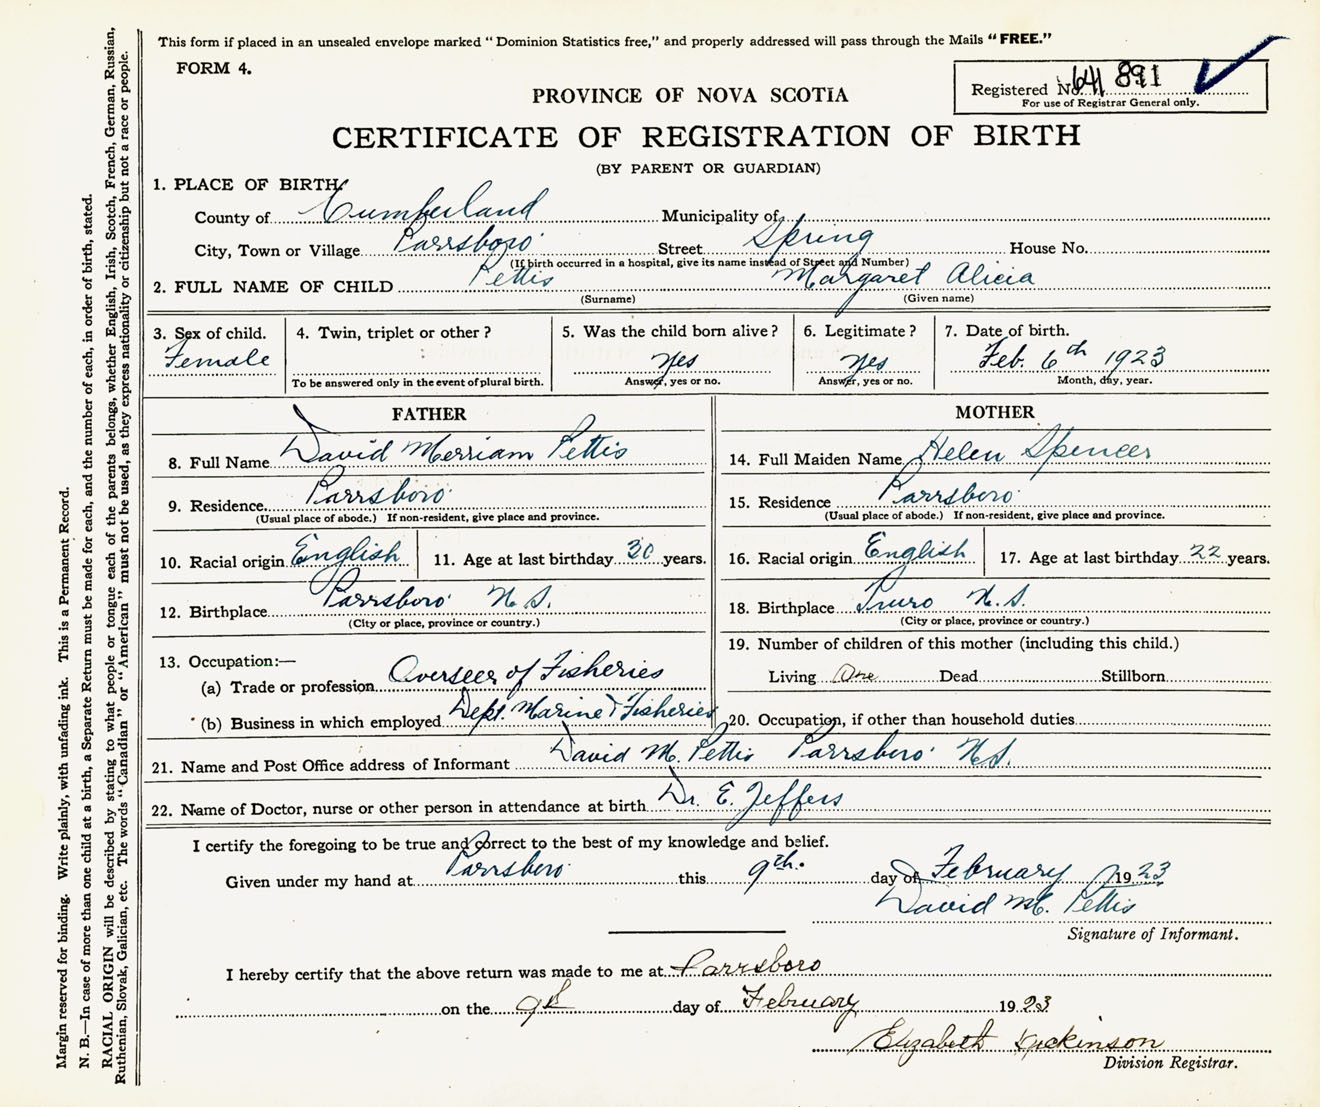 This form if placed in an unsealed envelope marked "Dominion Statistics free," and properly addressed will pass through the Mails "FREE."
FORM 4.
Registered No. 891
For use of Registrar General only.
PROVINCE OF NOVA SCOTIA
CERTIFICATE OF REGISTRATION OF BIRTH
(BY PARENT OR GUARDIAN)
1. PLACE OF BIRTH
County of Cumberland Municipality of
City, Town or Village Parrsboro Street Spring House No.
(If birth occurred in a hospital, give its name instead of Street and Number)
2. FULL NAME OF CHILD Pettis Margaret Alicia
(Surname) (Given name)
3. Sex of child. 4. Twin, triplet or other? 5. Was the child born alive? 6. Legitimate? 7. Date of birth.
Female Yes Yes Feb. 6th 1923
To be answered only in the event of plural birth. Answer, yes or no. Answer, yes or no. Month, day, year.
FATHER
8. Full Name David Merriam Pettis
9. Residence Parrsboro
(Usual place of abode.) If non-resident, give place and province.
10. Racial origin English 11. Age at last birthday 30 years.
12. Birthplace Parrsboro N.S.
(City or place, province or country.)
13. Occupation:—
(a) Trade or profession Overseer of Fisheries
(b) Business in which employed Dept. Marine & Fisheries
MOTHER
14. Full Maiden Name Helen Spencer
15. Residence Parrsboro
(Usual place of abode.) If non-resident, give place and province.
16. Racial origin English 17. Age at last birthday 22 years.
18. Birthplace Truro N.S.
(City or place, province or country.)
19. Number of children of this mother (including this child.)
Living One Dead Stillborn
20. Occupation, if other than household duties
21. Name and Post Office address of Informant David M. Pettis Parrsboro N.S.
22. Name of Doctor, nurse or other person in attendance at birth Dr. E. Jeffers
I certify the foregoing to be true and correct to the best of my knowledge and belief.
Given under my hand at Parrsboro this 9th. day of February 1923
David M. Pettis
Signature of Informant.
I hereby certify that the above return was made to me at Parrsboro
on the 9th day of February 1923
Elizabeth
Division Registrar.
Margin reserved for binding. Write plainly, with unfading ink. This is a Permanent Record.
N. B.—In case of more than one child at a birth, a Separate Return must be made for each, and the number of each, in order of birth, stated.
RACIAL ORIGIN will be described by stating to what people or tongue each of the parents belongs, whether English, Irish, Scotch, French, German, Russian,
Ruthenian, Slovak, Galician, etc. The words "Canadian" or "American" must not be used, as they express nationality or citizenship but not a race or people.